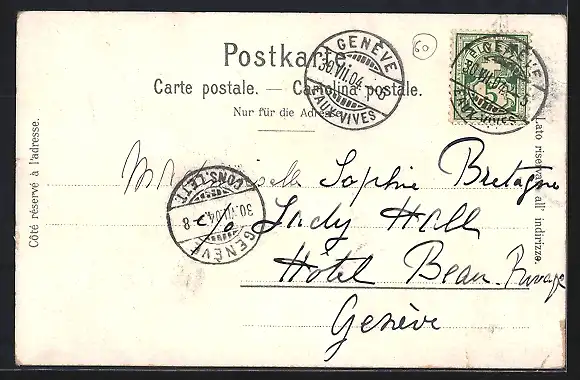 Postkarte.
Carte postale. — Cartolina postale.
Nur für die Adresse.
Côté réservé à l'adresse.
Lato riservato all' indirizzo.
60
GENÈVE
30.VII.04.
EAUX-VIVES
GENÈVE
30.VII.04.
EAUX-VIVES
CONS. LETT.
30.VII.04. 8
GENÈVE
Mademoiselle Sophie Bretagne
c/o Lady Hall
Hôtel Beau-Rivage
Genève